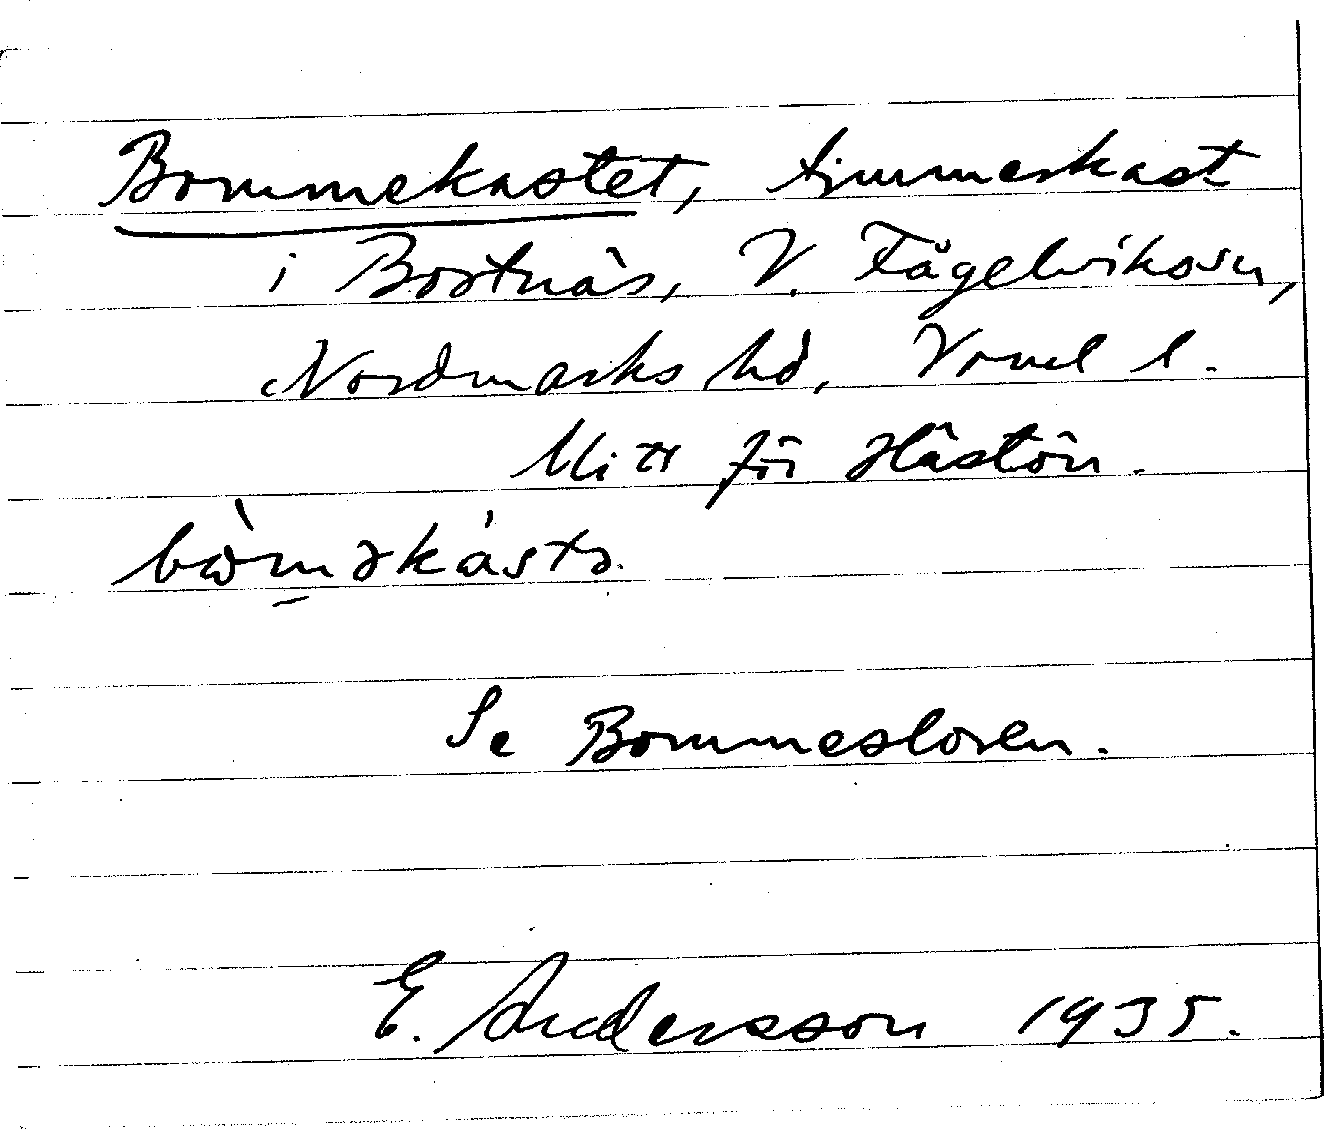 Bommekastet, timmerkast
i Bortnäs, V. Fågelviks sn,
Nordmarks hd, Vrml l.
Mitt för Hästön.
bòm̲əkástə.
Se Bommesloven.
E. Andersson 1935.